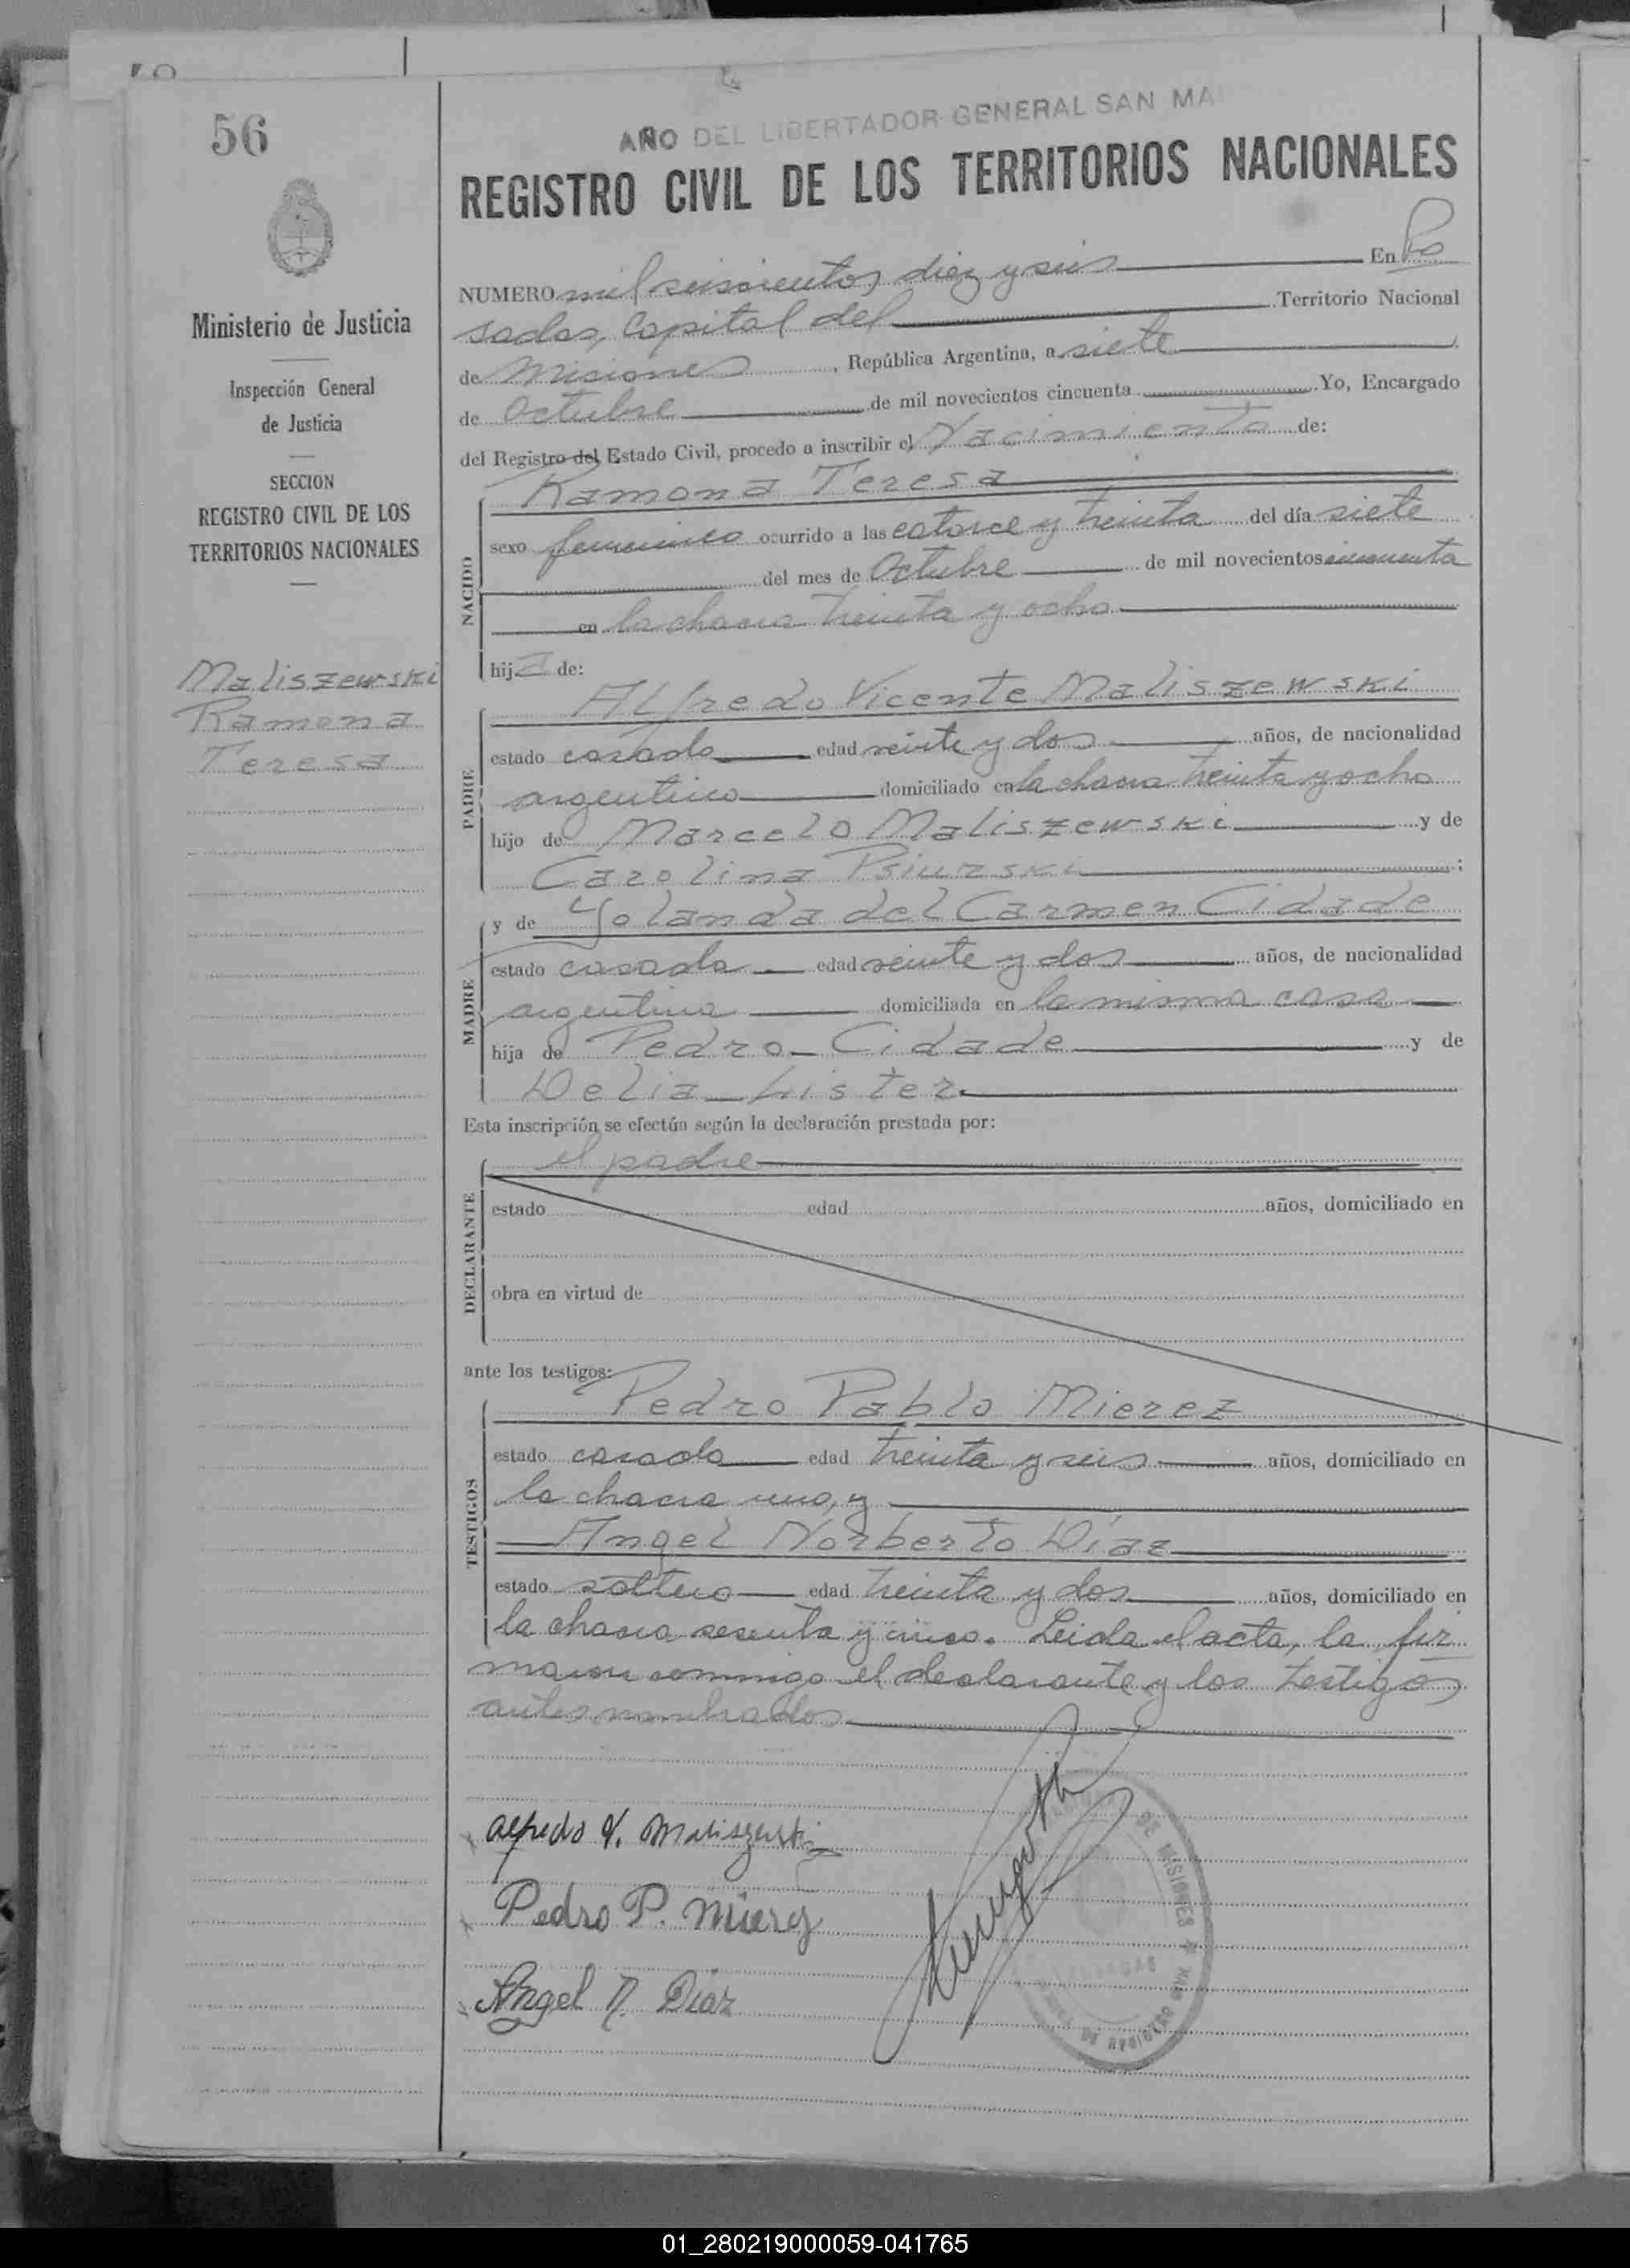 56
AÑO DEL LIBERTADOR GENERAL SAN MA
REGISTRO CIVIL DE LOS TERRITORIOS NACIONALES
Ministerio de Justicia
Inspección General
de Justicia
SECCION
REGISTRO CIVIL DE LOS
TERRITORIOS NACIONALES
Maliszewski
Ramona
Teresa
NUMERO mil seiscientos diez y seis En Po
sadas, Capital del Territorio Nacional
de Misiones, República Argentina, a siete
de Octubre de mil novecientos cincuenta Yo, Encargado
del Registro del Estado Civil, procedo a inscribir el Nacimiento de:
NACIDO
Ramona Teresa
sexo femenino ocurrido a las catorce y treinta del día siete
del mes de Octubre de mil novecientos cincuenta
en la chacra treinta y ocho
hija de:
PADRE
Alfredo Vicente Maliszewski
estado casado edad veinte y dos años, de nacionalidad
argentino domiciliado en la chacra treinta y ocho
hijo de Marcelo Maliszewski y de
Carolina Psiurski;
MADRE
y de Yolanda del Carmen Cidade
estado casada edad veinte y dos años, de nacionalidad
argentina domiciliada en la misma casa
hija de Pedro Cidade y de
Delia Lister
Esta inscripción se efectúa según la declaración prestada por:
DECLARANTE
el padre
estado edad años, domiciliado en
obra en virtud de
ante los testigos:
TESTIGOS
Pedro Pablo Mierez
estado casado edad treinta y seis años, domiciliado en
la chacra uno, y
Angel Norberto Díaz
estado soltero edad treinta y dos años, domiciliado en
la chacra sesenta y cinco. Leida el acta, la fir
maron conmigo el declarante y los testigos
antes nombrados
Alfredo V. Maliszewski
Pedro P. Mierez
Angel N. Diaz
DE MISIONES
POSADAS
DE REGISTRO CIVIL
01_280219000059-041765